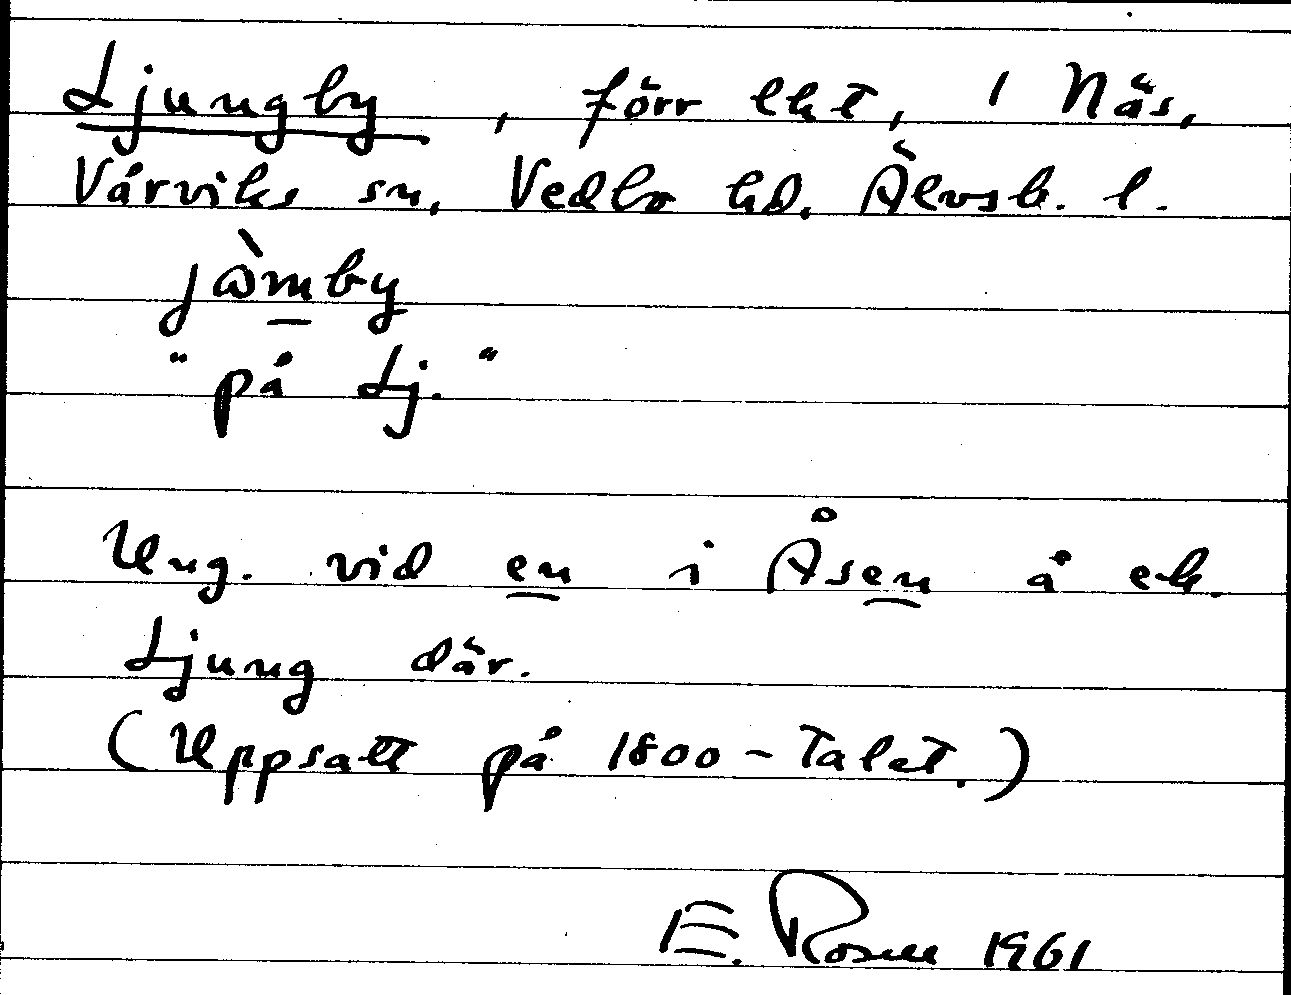 Ljungby, förr lht, i Näs,
Vårviks sn, Vedbo hd, Älvsb. l.
jɷ̀mby
"på Lj."
Ung. vid en i Åsen å ek.
Ljung där.
(Uppsatt på 1800-talet.)
E. Rosell 1961